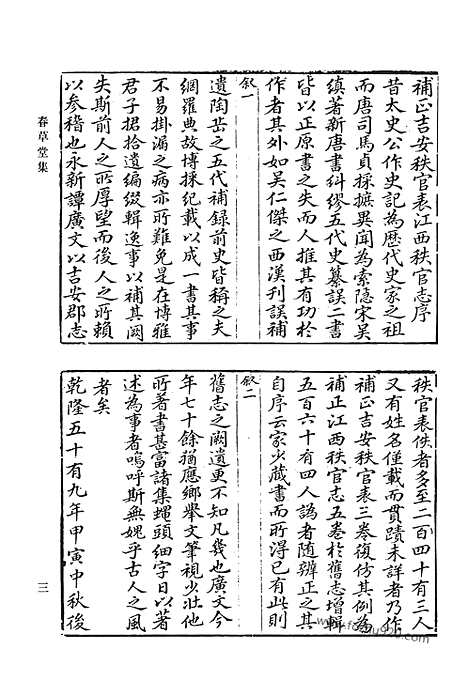 補正吉安秩官表江西秩官志序
昔太史公作史記為歷代史家之祖
而唐司馬貞採摭異聞為索隱宋吴
縝著新唐書糾繆五代史纂誤二書
皆以正原書之失而人推其有功於
作者其外如吴仁傑之西漢刊誤補
叙一
遺陶岳之五代補録前史皆稱之夫
網羅典故博採紀載以成一書其事
不易掛漏之病亦所難免是在博雅
君子捃拾遺編綴輯逸事以補其闕
失斯前人之所厚望而後人之所賴
以參稽也永新譚廣文以吉安郡志
春草堂集
秩官表佚者多至二百四十有三人
又有姓名僅載而貫蹟未詳者乃作
補正吉安秩官表三卷復仿其例為
補正江西秩官志五卷於舊志增輯
五百六十有四人譌者随辨正之其
自序云家少藏書而所得已有此則
叙二
舊志之闕遺更不知凡幾也廣文今
年七十餘猶應鄉舉文筆視少壯他
所著書甚富諸集蠅頭細字日以著
述為事者嗚呼斯無媿乎古人之風
者矣
乾隆五十有九年甲寅中秋後
三